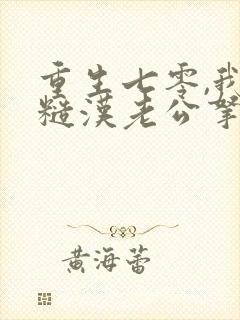 重生七零,我
糙漢老公寧
黃海蕾